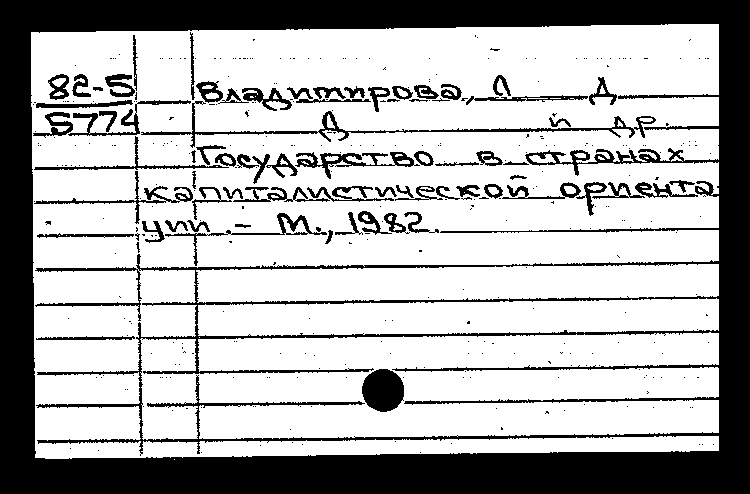 82-5 Владимирова, Л Д
5774 Д и др.
Государство в странах
капиталистической ориента
ции. – М., 1982.